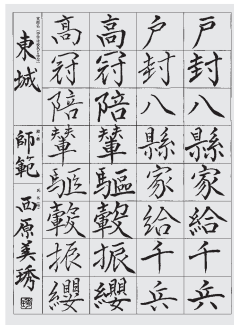 戸封八縣家給千兵
戸封八縣家給千兵
高冠陪輦驅轂振纓
高冠陪輦驅轂振纓
東城 師範 西原美琇